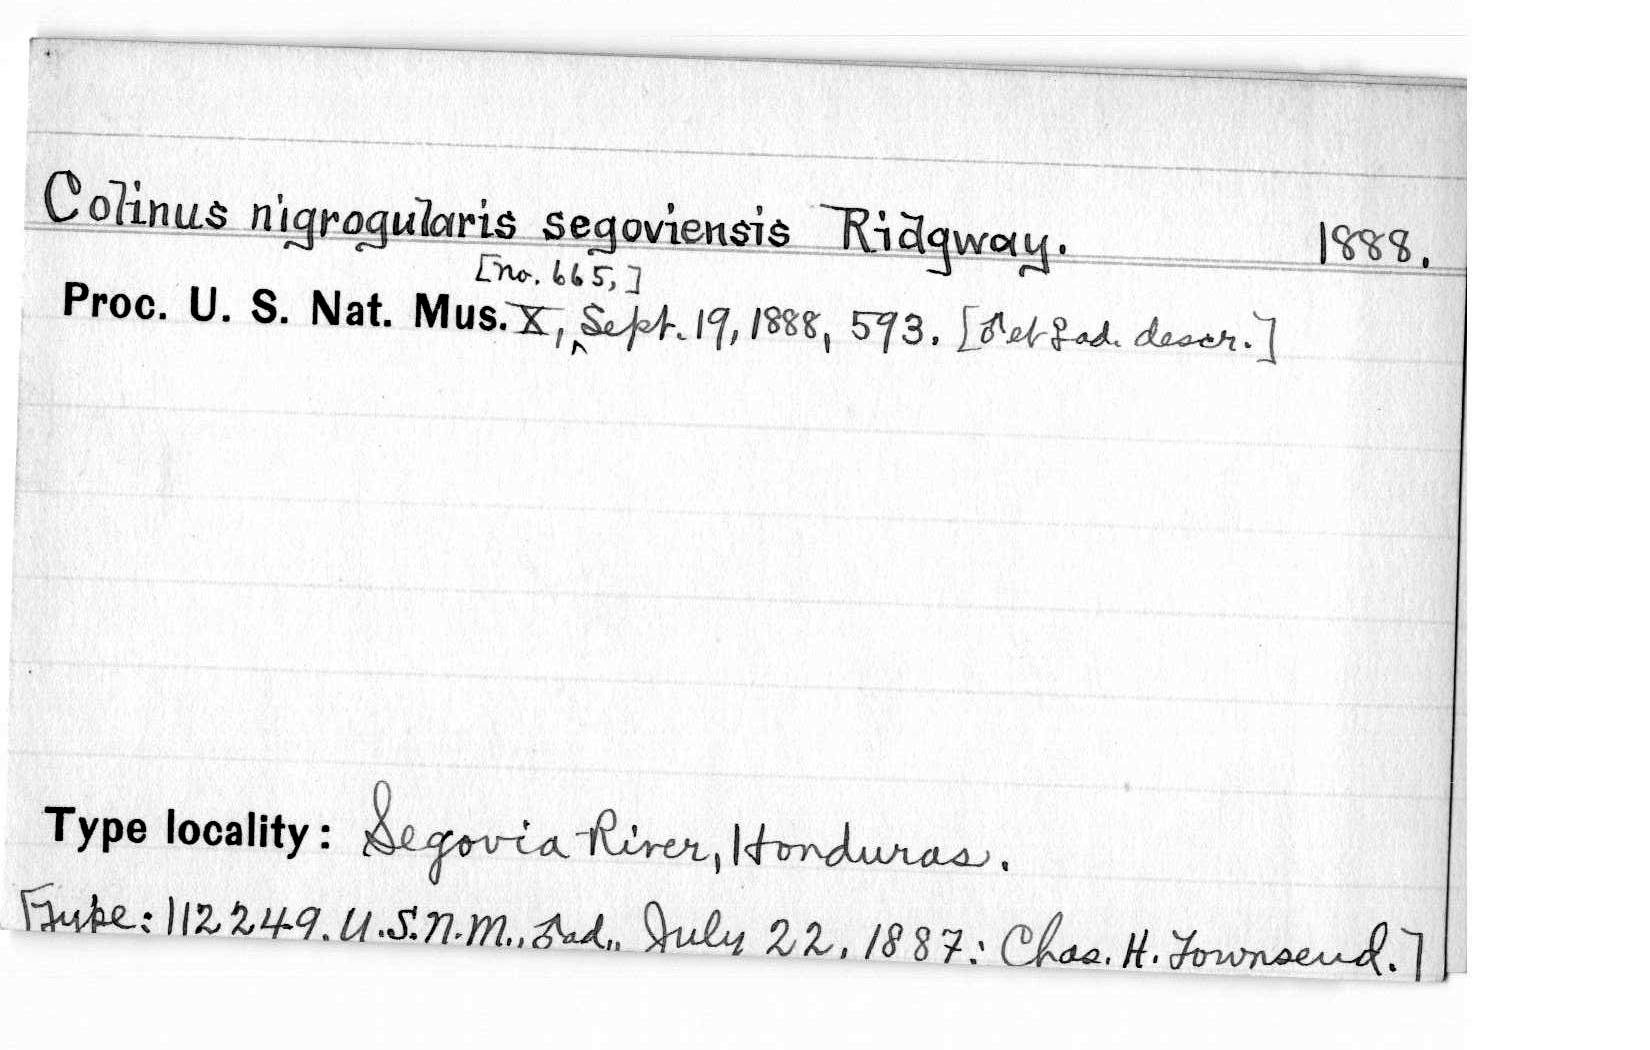 Colinus nigrogularis segoviensis Ridgway. 1888.
[no. 665,]
Proc. U. S. Nat. Mus. X, ‸ Sept. 19, 1888, 593. [♂ et ♀ ad. descr.]
Type locality: Segovia River, Honduras.
[Type: 112249. U.S.N.M., ♂ ad., July 22, 1887: Chas. H. Townsend.]